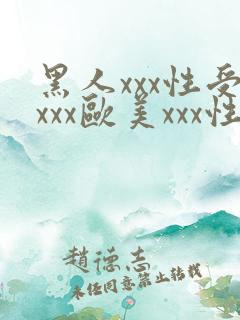 黑人xxx性受
xxx歐美xxx性
趙德志
未经同意禁止转载